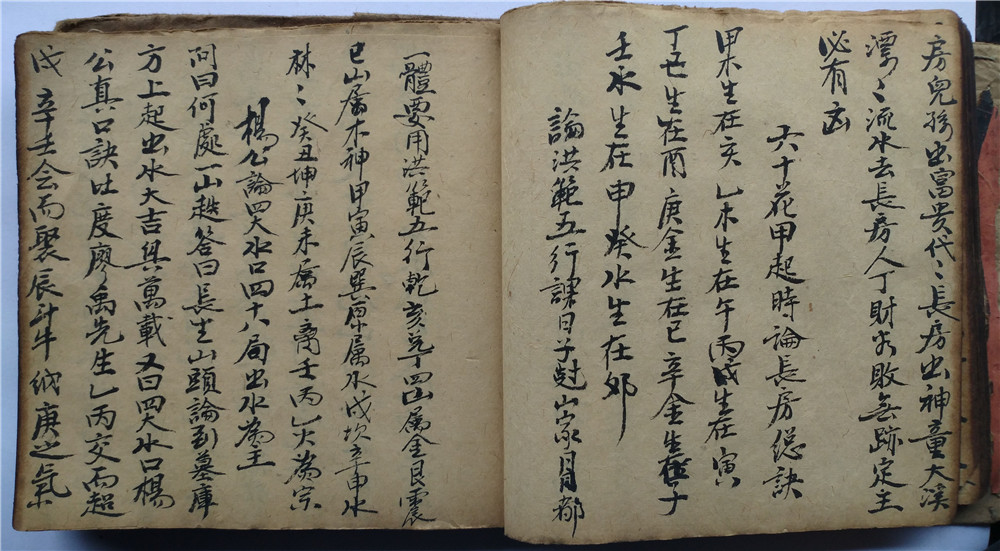 房兒孫出富貴代〻長房出神童大溪
漂〻流水去長房人丁財亦敗無跡定主
必有凶
六十花甲起時論長房總訣
甲木生在亥乙木生在午丙戊生在寅
丁己生在酉庚金生在巳辛金生在子
壬水生在申癸水生在卯
論洪範五行課日子尅山家月都
一體要用洪範五行乾亥兌丁四山屬金艮震
巳山屬木神甲寅辰巽原屬水戊坎辛申水
林〻癸丑坤庚未屬土離壬丙乙火為宗
楊公論四大水口四十八局出水為主
問曰何處一山趂答曰長生山頭論到墓庫
方上起出水大吉與萬載又曰四大水口楊
公真口訣吐度廖禹先生乙丙交而趨
戌辛壬會而聚辰斗牛納庚之氣